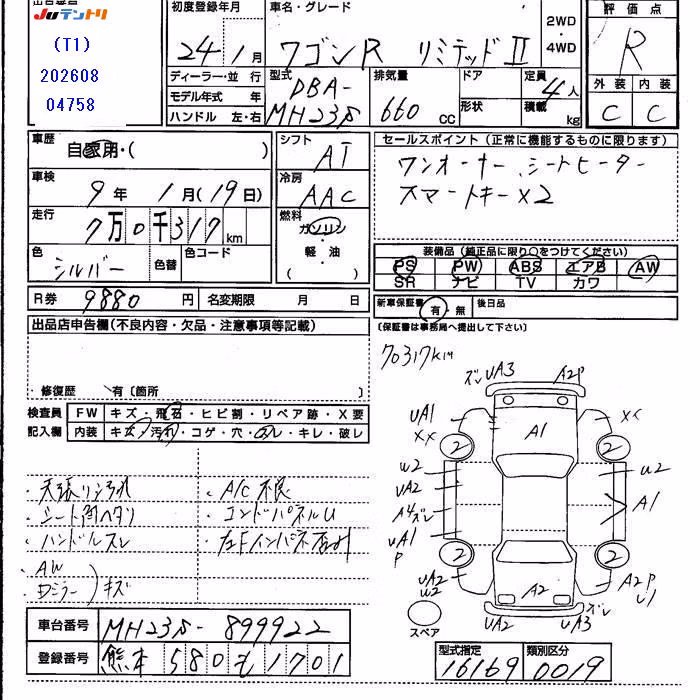 出品番号
JUテントリ
(T1)
202608
04758
初度登録年月
24年1月
車名・グレード
ワゴンR リミテッドⅡ
2WD・4WD
評価点
R
ディーラー・並行
モデル年式 年
ハンドル 左・右
型式
DBA-MH23S
排気量
660 CC
ドア
形状
定員
4人
積載
kg
外装 内装
C C
車歴
自家用・( )
車検
9年 1月(19日)
走行
7万0千317km
色
シルバー
色替
色コード
シフト
AT
冷房
AAC
燃料
ガソリン・軽油
( )
セールスポイント(正常に機能するものに限ります)
ワンオーナー、シートヒーター
スマートキーx2
装備品(純正品に限り○をつけてください)
PS PW ABS エアB AW
SR ナビ TV カワ
R券 9880円 名変期限 月 日
新車保証書 有・無 後日品
(保証書は事務局へ提出して下さい)
出品店申告欄(不良内容・欠品・注意事項等記載)
・修復歴 有〔箇所 〕
70317K
検査員記入欄
FW キズ・飛石・ヒビ割・リペア跡・X要
内装 キズ・汚れ・コゲ・穴・スレ・キレ・破レ
・天張リシ汚れ
・シート角ヘタリ
・ハンドルスレ
・AW
Dミラー)キズ
・A/C不良
・エンドパネルU
・左Fインパネ歪み
ズレ UA3 A2P
UA1 XX
A1
XX
2 2
U2 U2
UA2
A4ズレ A1
UA1 P
2 2
UA2 U2
A2
A2P U1
UA2 UA3 ズレ
スペア
車台番号 MH23S-899922
登録番号 熊本 580 も 1701
型式指定 16169
類別区分 0019